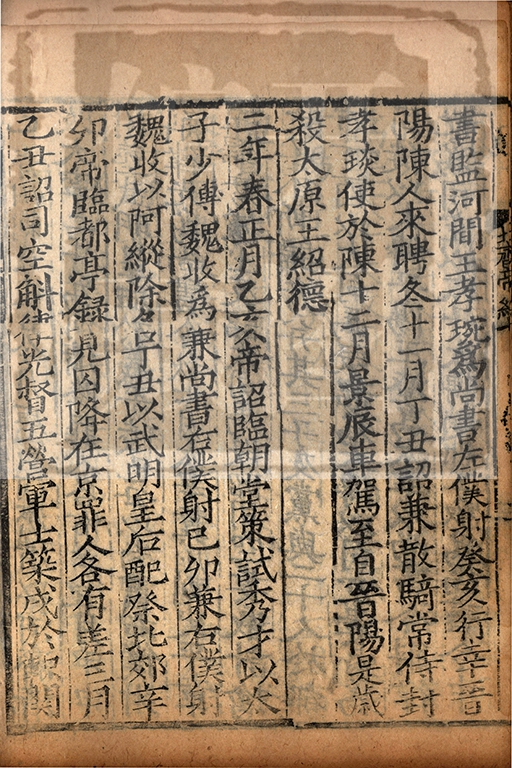 書監河間王孝琬爲尚書左僕射癸亥行幸晋
陽陳人來聘冬十一月丁丑詔兼散騎常侍封
孝琰使於陳十二月景辰車駕至自晉陽是歲
殺太原王紹德
二年春正月乙亥帝詔臨朝堂策試秀才以太
子少傅魏收爲兼尚書右僕射己卯兼右僕射
魏收以阿縱除名丁丑以武明皇后配祭北郊辛
卯帝臨都亭録見囚降在京罪人各有差三月
乙丑詔司空斛律光督五營軍士築戍於軹關